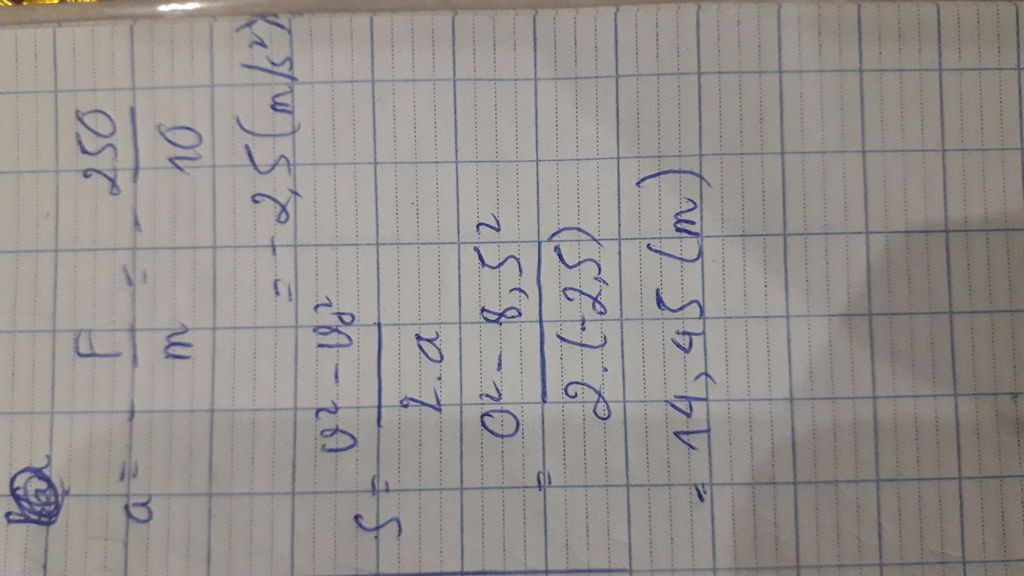 a = - F/m = - 250/10
= - 2,5 (m/s²)
S = (v² - v₀²)/(2.a)
= (0² - 8,5²)/(2.(-2,5))
= 14,45 (m)